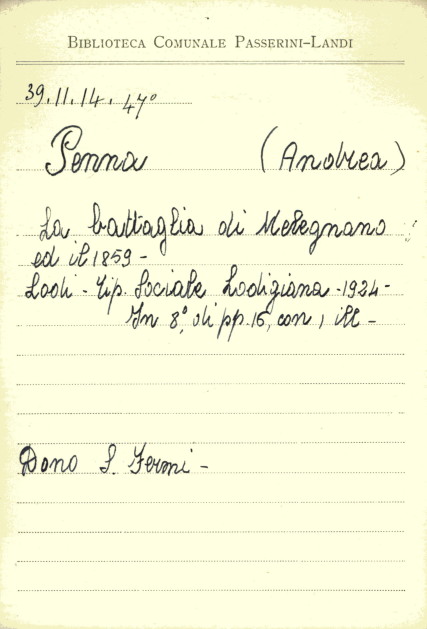 BIBLIOTECA COMUNALE PASSERINI-LANDI
39.11.14. 47°
Penna (Andrea)
La battaglia di Melegnano
ed il 1859 -
Lodi - Tip. Sociale Lodigiana - 1924 -
In 8°, di pp. 15, con 1 ill -
Dono S. Fermi -